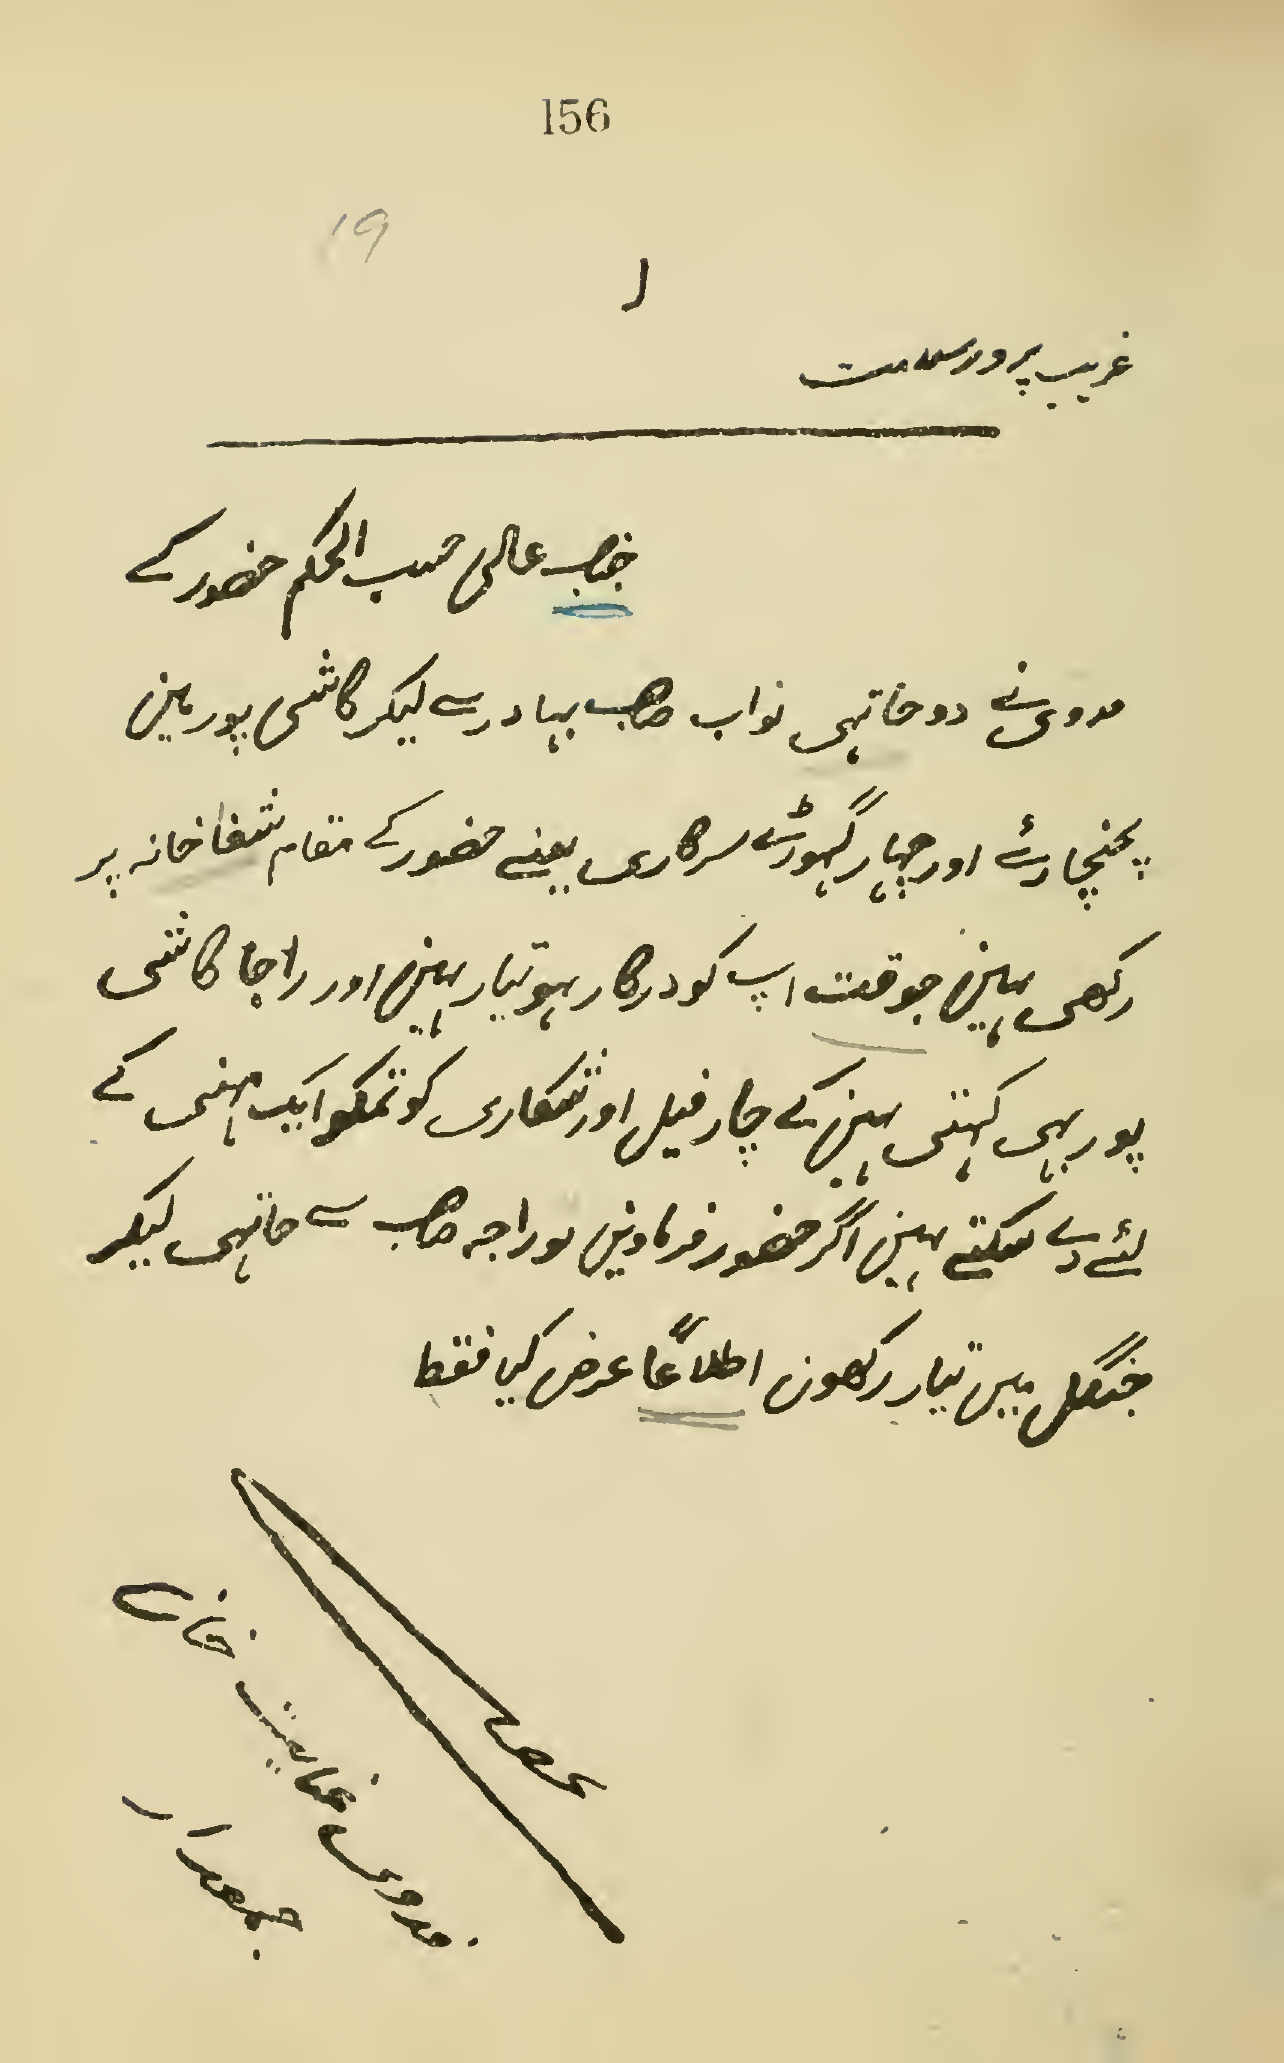 156
19
غریب پرور سلامت
جناب عالی حسب الحکم حضور کے
فدوی نے دو هاتهی نواب صاحب بہادر سے لیکر کاشی پور مین
پہنچا دئے اور چہار گہوڑے سرکاری یعنے حضور کے مقام شفا خانہ پر
رکھی ہین جوقت اپ کو درکار ہو تیار ہین اور راجا کاشی
پور بہی کہتی ہین کے چار فیل اور شکاری کو تمکو ایک مہنی کے
لئے دے سکتے ہین اگر حضور فرماوین تو راجہ صاحب سے هاتهی لیکر
جنگل میں تیار رکھون اطلاعاً عرض کی فقط
فدوی عنایت خان
جمعدار